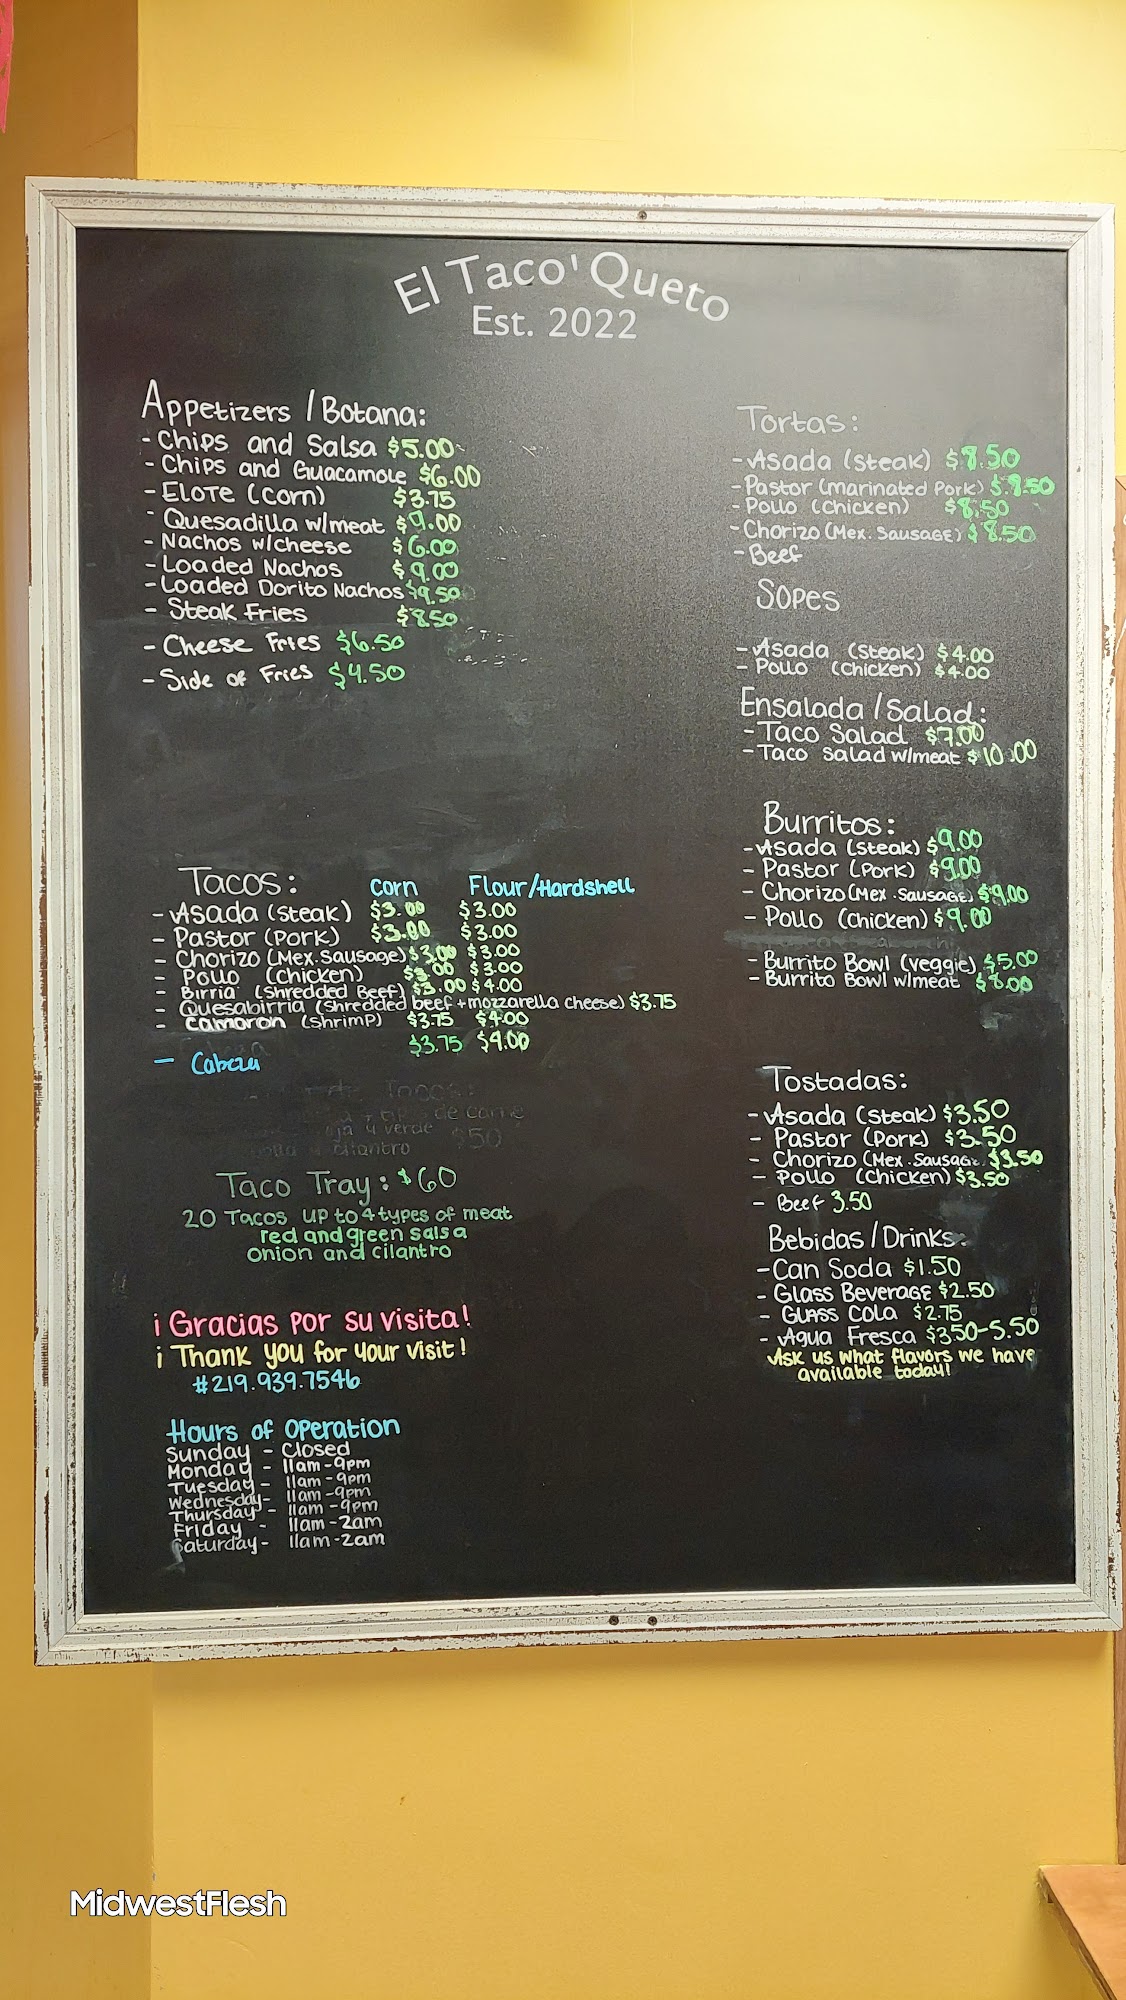 El Taco' Queto
Est. 2022
Appetizers / Botana:
- Chips and Salsa $5.00
- Chips and Guacamole $6.00
- Elote (corn) $3.75
- Quesadilla w/meat $9.00
- Nachos w/cheese $6.00
- Loaded Nachos $9.00
- Loaded Dorito Nachos $9.50
- Steak Fries $8.50
- Cheese Fries $6.50
- Side of Fries $4.50
Tacos: Corn Flour/Hardshell
- Asada (steak) $3.00 $3.00
- Pastor (pork) $3.00 $3.00
- Chorizo (Mex. Sausage) $3.00 $3.00
- Pollo (chicken) $3.00 $3.00
- Birria (Shredded Beef) $3.00 $4.00
- Quesabirria (shredded beef + mozzarella cheese) $3.75
- Camaron (shrimp) $3.75 $4.00
$3.75 $4.00
- Cabeza
de carne
y verde $50
cilantro
Taco Tray: $60
20 Tacos up to 4 types of meat
red and green salsa
onion and cilantro
¡Gracias por su visita!
¡Thank you for your visit!
#219.939.7546
Hours of Operation
Sunday - Closed
Monday - 11am-9pm
Tuesday - 11am-9pm
Wednesday- 11am-9pm
Thursday - 11am-9pm
Friday - 11am-2am
Saturday- 11am-2am
Tortas:
- Asada (steak) $8.50
- Pastor (marinated Pork) $8.50
- Pollo (chicken) $8.50
- Chorizo (Mex. Sausage) $8.50
- Beef
Sopes
- Asada (steak) $4.00
- Pollo (chicken) $4.00
Ensalada / Salad:
- Taco Salad $7.00
- Taco Salad w/meat $10.00
Burritos:
- Asada (steak) $9.00
- Pastor (Pork) $9.00
- Chorizo (Mex. Sausage) $9.00
- Pollo (chicken) $9.00
- Burrito Bowl (veggie) $5.00
- Burrito Bowl w/meat $8.00
Tostadas:
- Asada (steak) $3.50
- Pastor (Pork) $3.50
- Chorizo (Mex. Sausage) $3.50
- Pollo (chicken) $3.50
- Beef 3.50
Bebidas / Drinks:
- Can Soda $1.50
- Glass Beverage $2.50
- Glass Cola $2.75
- Agua Fresca $3.50-5.50
Ask us what flavors we have
available today!
MidwestFlesh